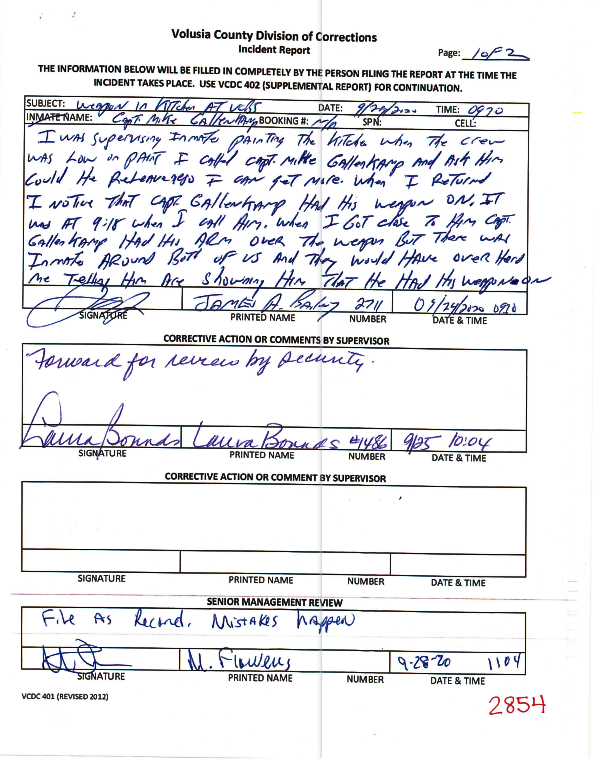 Volusia County Division of Corrections
Incident Report
Page: 1 of 2
THE INFORMATION BELOW WILL BE FILLED IN COMPLETELY BY THE PERSON FILING THE REPORT AT THE TIME THE
INCIDENT TAKES PLACE. USE VCDC 402 (SUPPLEMENTAL REPORT) FOR CONTINUATION.
SUBJECT: Weapon in Kitchen AT VCBJ DATE: 9/24/2020 TIME: 0930
INMATE NAME: Capt Mike Gallenkamp BOOKING #: N/A SPN: CELL:
I was supervising Inmates painting The Kitchen when The crew
was Low on pAint I called capt. Mike Gallenkamp And Ask Him
Could He so I can get more. when I Returned
I notice That capt. Gallenkamp Had His weapon ON. IT
was AT 9:18 when I call Him. when I Got close To Him Capt.
Gallenkamp HAd His ARM over The weapon But There was
Inmate ARound Both of us And They would HAve over Herd
me Telling Him Are Showing Him THAT He Had His weapon ON
JAMES A. Baily 2711 09/24/2020 0930
SIGNATURE PRINTED NAME NUMBER DATE & TIME
CORRECTIVE ACTION OR COMMENTS BY SUPERVISOR
Forward for review by security.
Laura Bounds Laura Bounds #1486 9/25 10:04
SIGNATURE PRINTED NAME NUMBER DATE & TIME
CORRECTIVE ACTION OR COMMENT BY SUPERVISOR
SIGNATURE PRINTED NAME NUMBER DATE & TIME
SENIOR MANAGEMENT REVIEW
File As Record. Mistakes happen
M. Flowers 9-28-20 1104
SIGNATURE PRINTED NAME NUMBER DATE & TIME
VCDC 401 (REVISED 2012)
2854